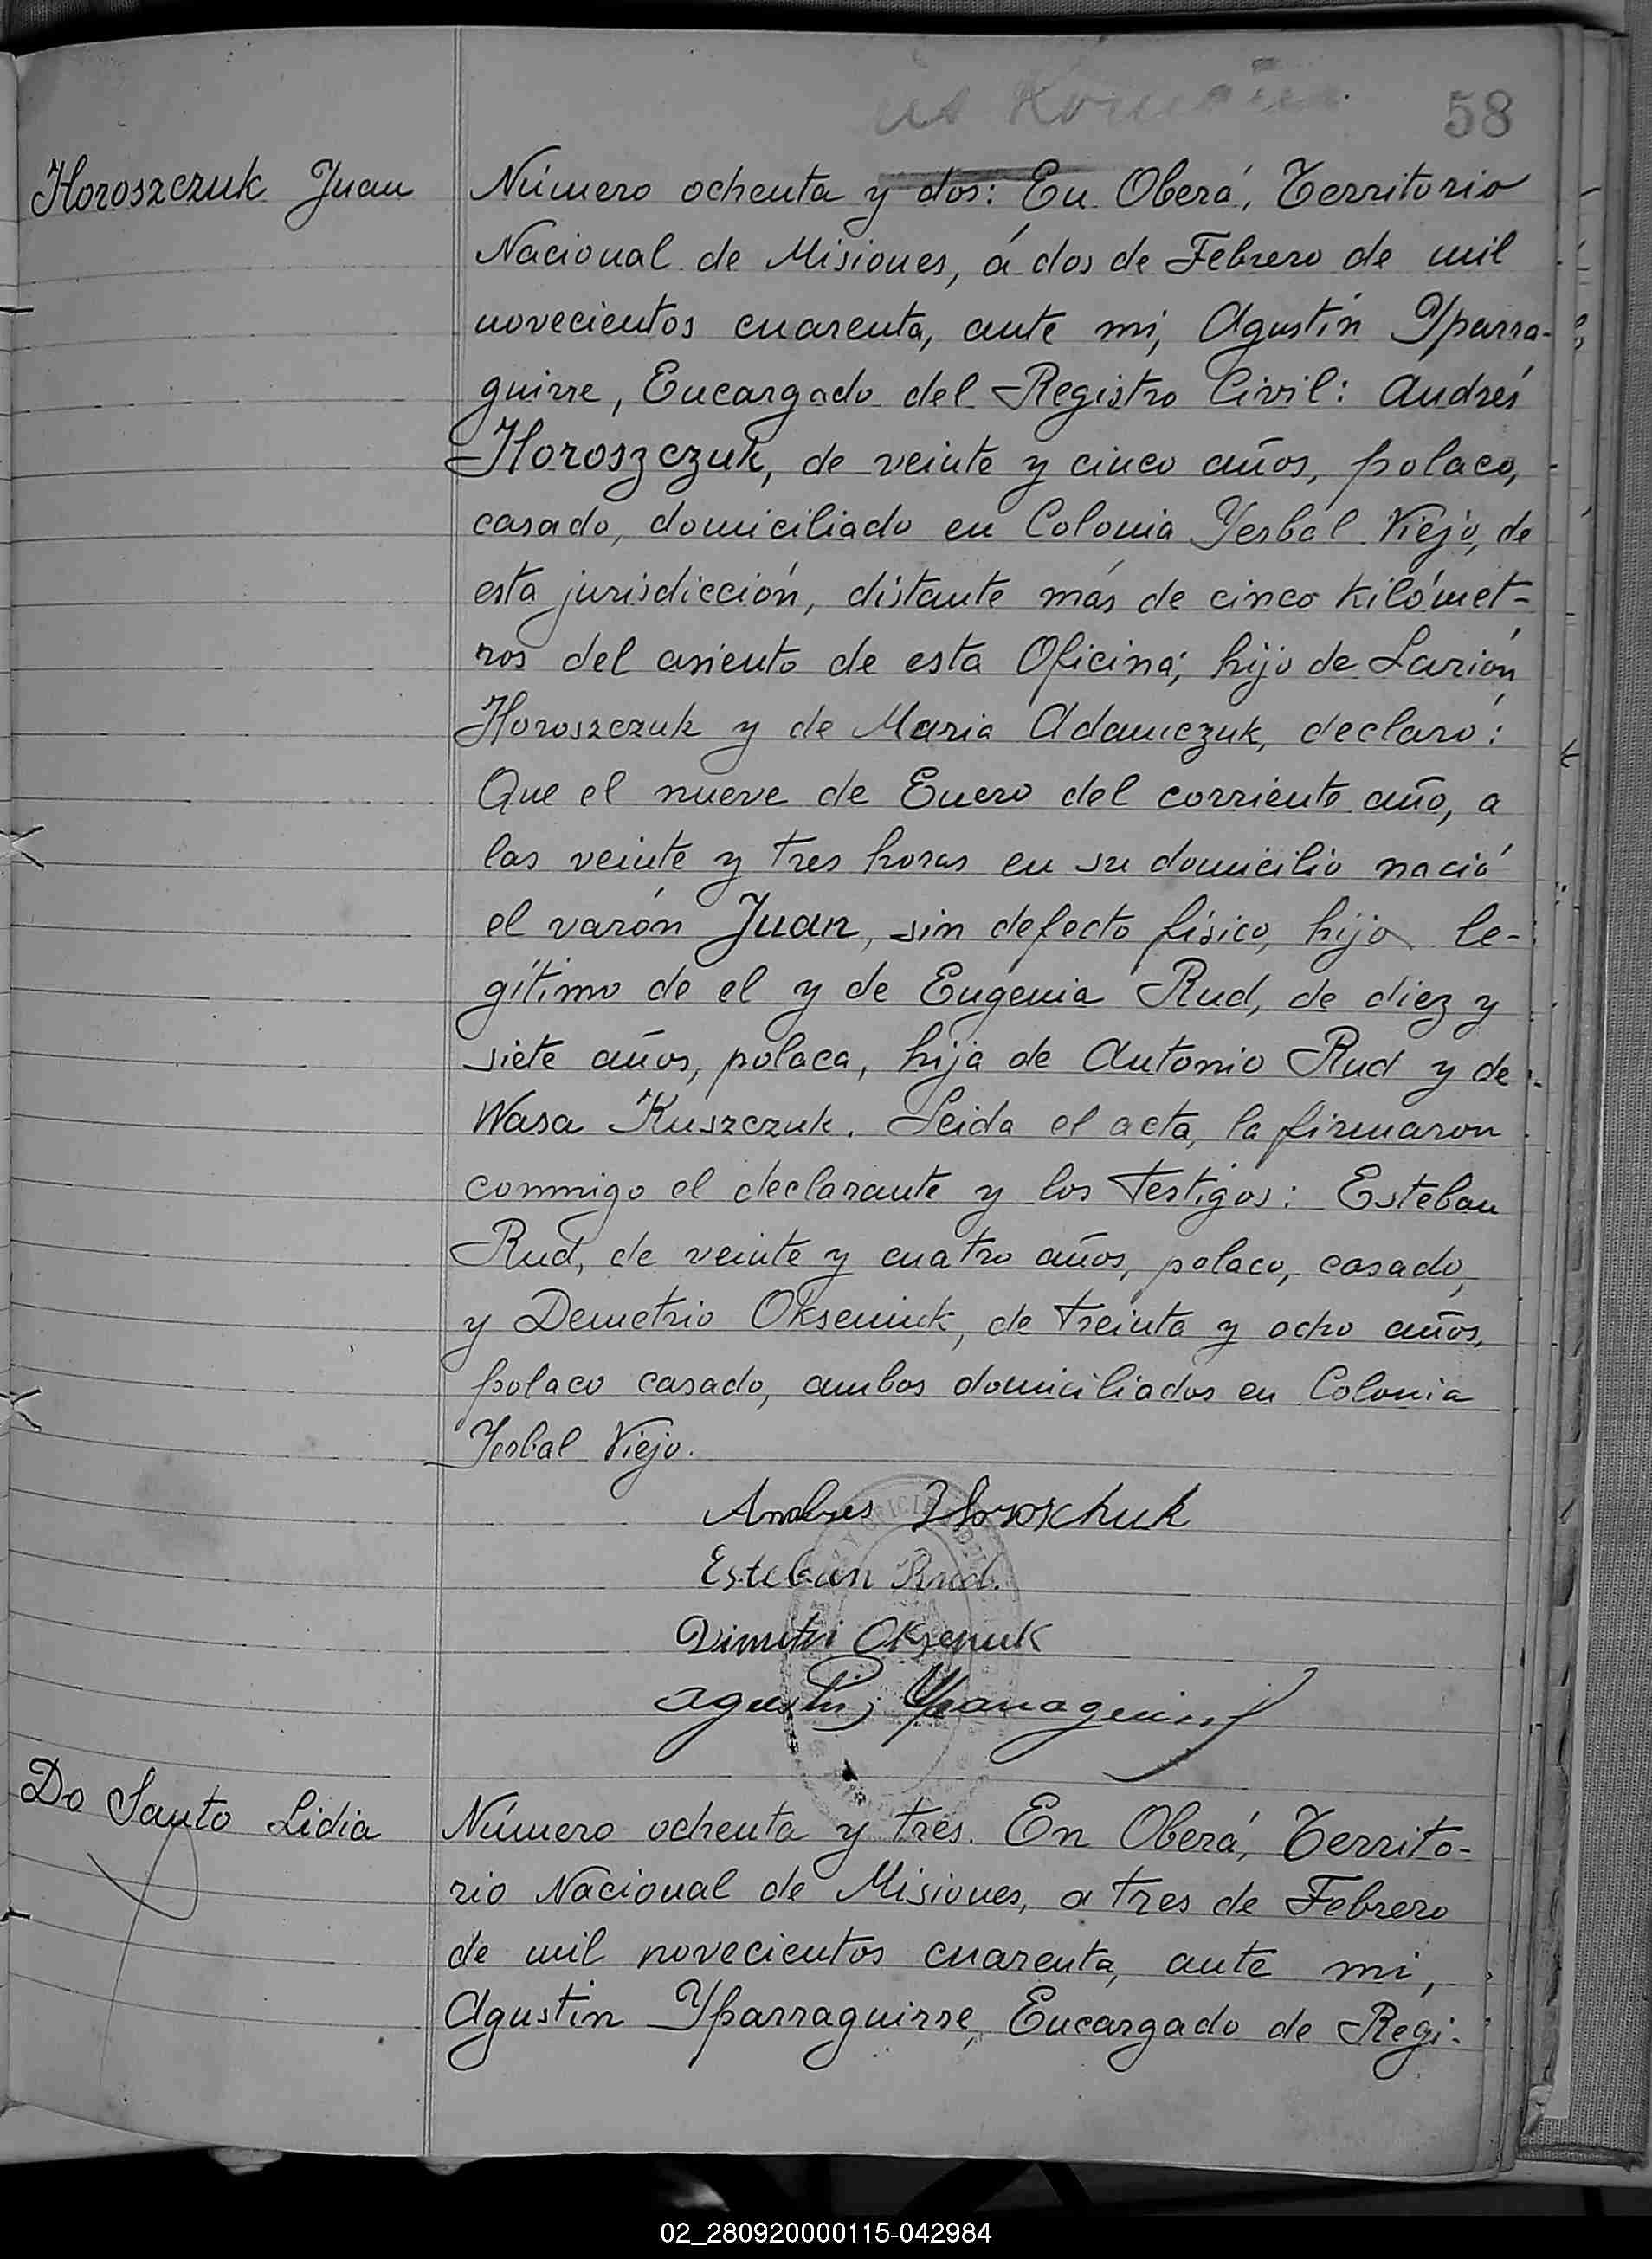 58
Horoszczuk Juan
Número ochenta y dos: En Oberá, Territorio
Nacional de Misiones, á dos de Febrero de mil
novecientos cuarenta, ante mi, Agustín Yparra-
guirre, Encargado del Registro Civil: Andrés
Horoszczuk, de veinte y cinco años, polaco,
casado, domiciliado en Colonia Yerbal Viejo, de
esta jurisdicción, distante más de cinco kilómet-
ros del asiento de esta Oficina; hijo de Larión
Horoszczuk y de Maria Adamczuk, declaró:
Que el nueve de Enero del corriente año, a
las veinte y tres horas en su domicilio nació
el varón Juan, sin defecto físico, hijo le-
gítimo de el y de Eugenia Rud, de diez y
siete años, polaca, hija de Antonio Rud y de
Wasa Kuszczuk. Leida el acta, la firmaron
conmigo el declarante y los testigos: Esteban
Rud, de veinte y cuatro años, polaco, casado,
y Demetrio Okseniuk, de treinta y ocho años,
polaco casado, ambos domiciliados en Colonia
Yerbal Viejo.
Andres Horoschuk
Esteban Rud.
Dimitri Oksenuk
Agustin Yparraguirre
Do Santo Lidia
Número ochenta y tres. En Oberá, Territo-
rio Nacional de Misiones, a tres de Febrero
de mil novecientos cuarenta, ante mi,
Agustin Yparraguirre, Encargado de Regi-
02_280920000115-042984